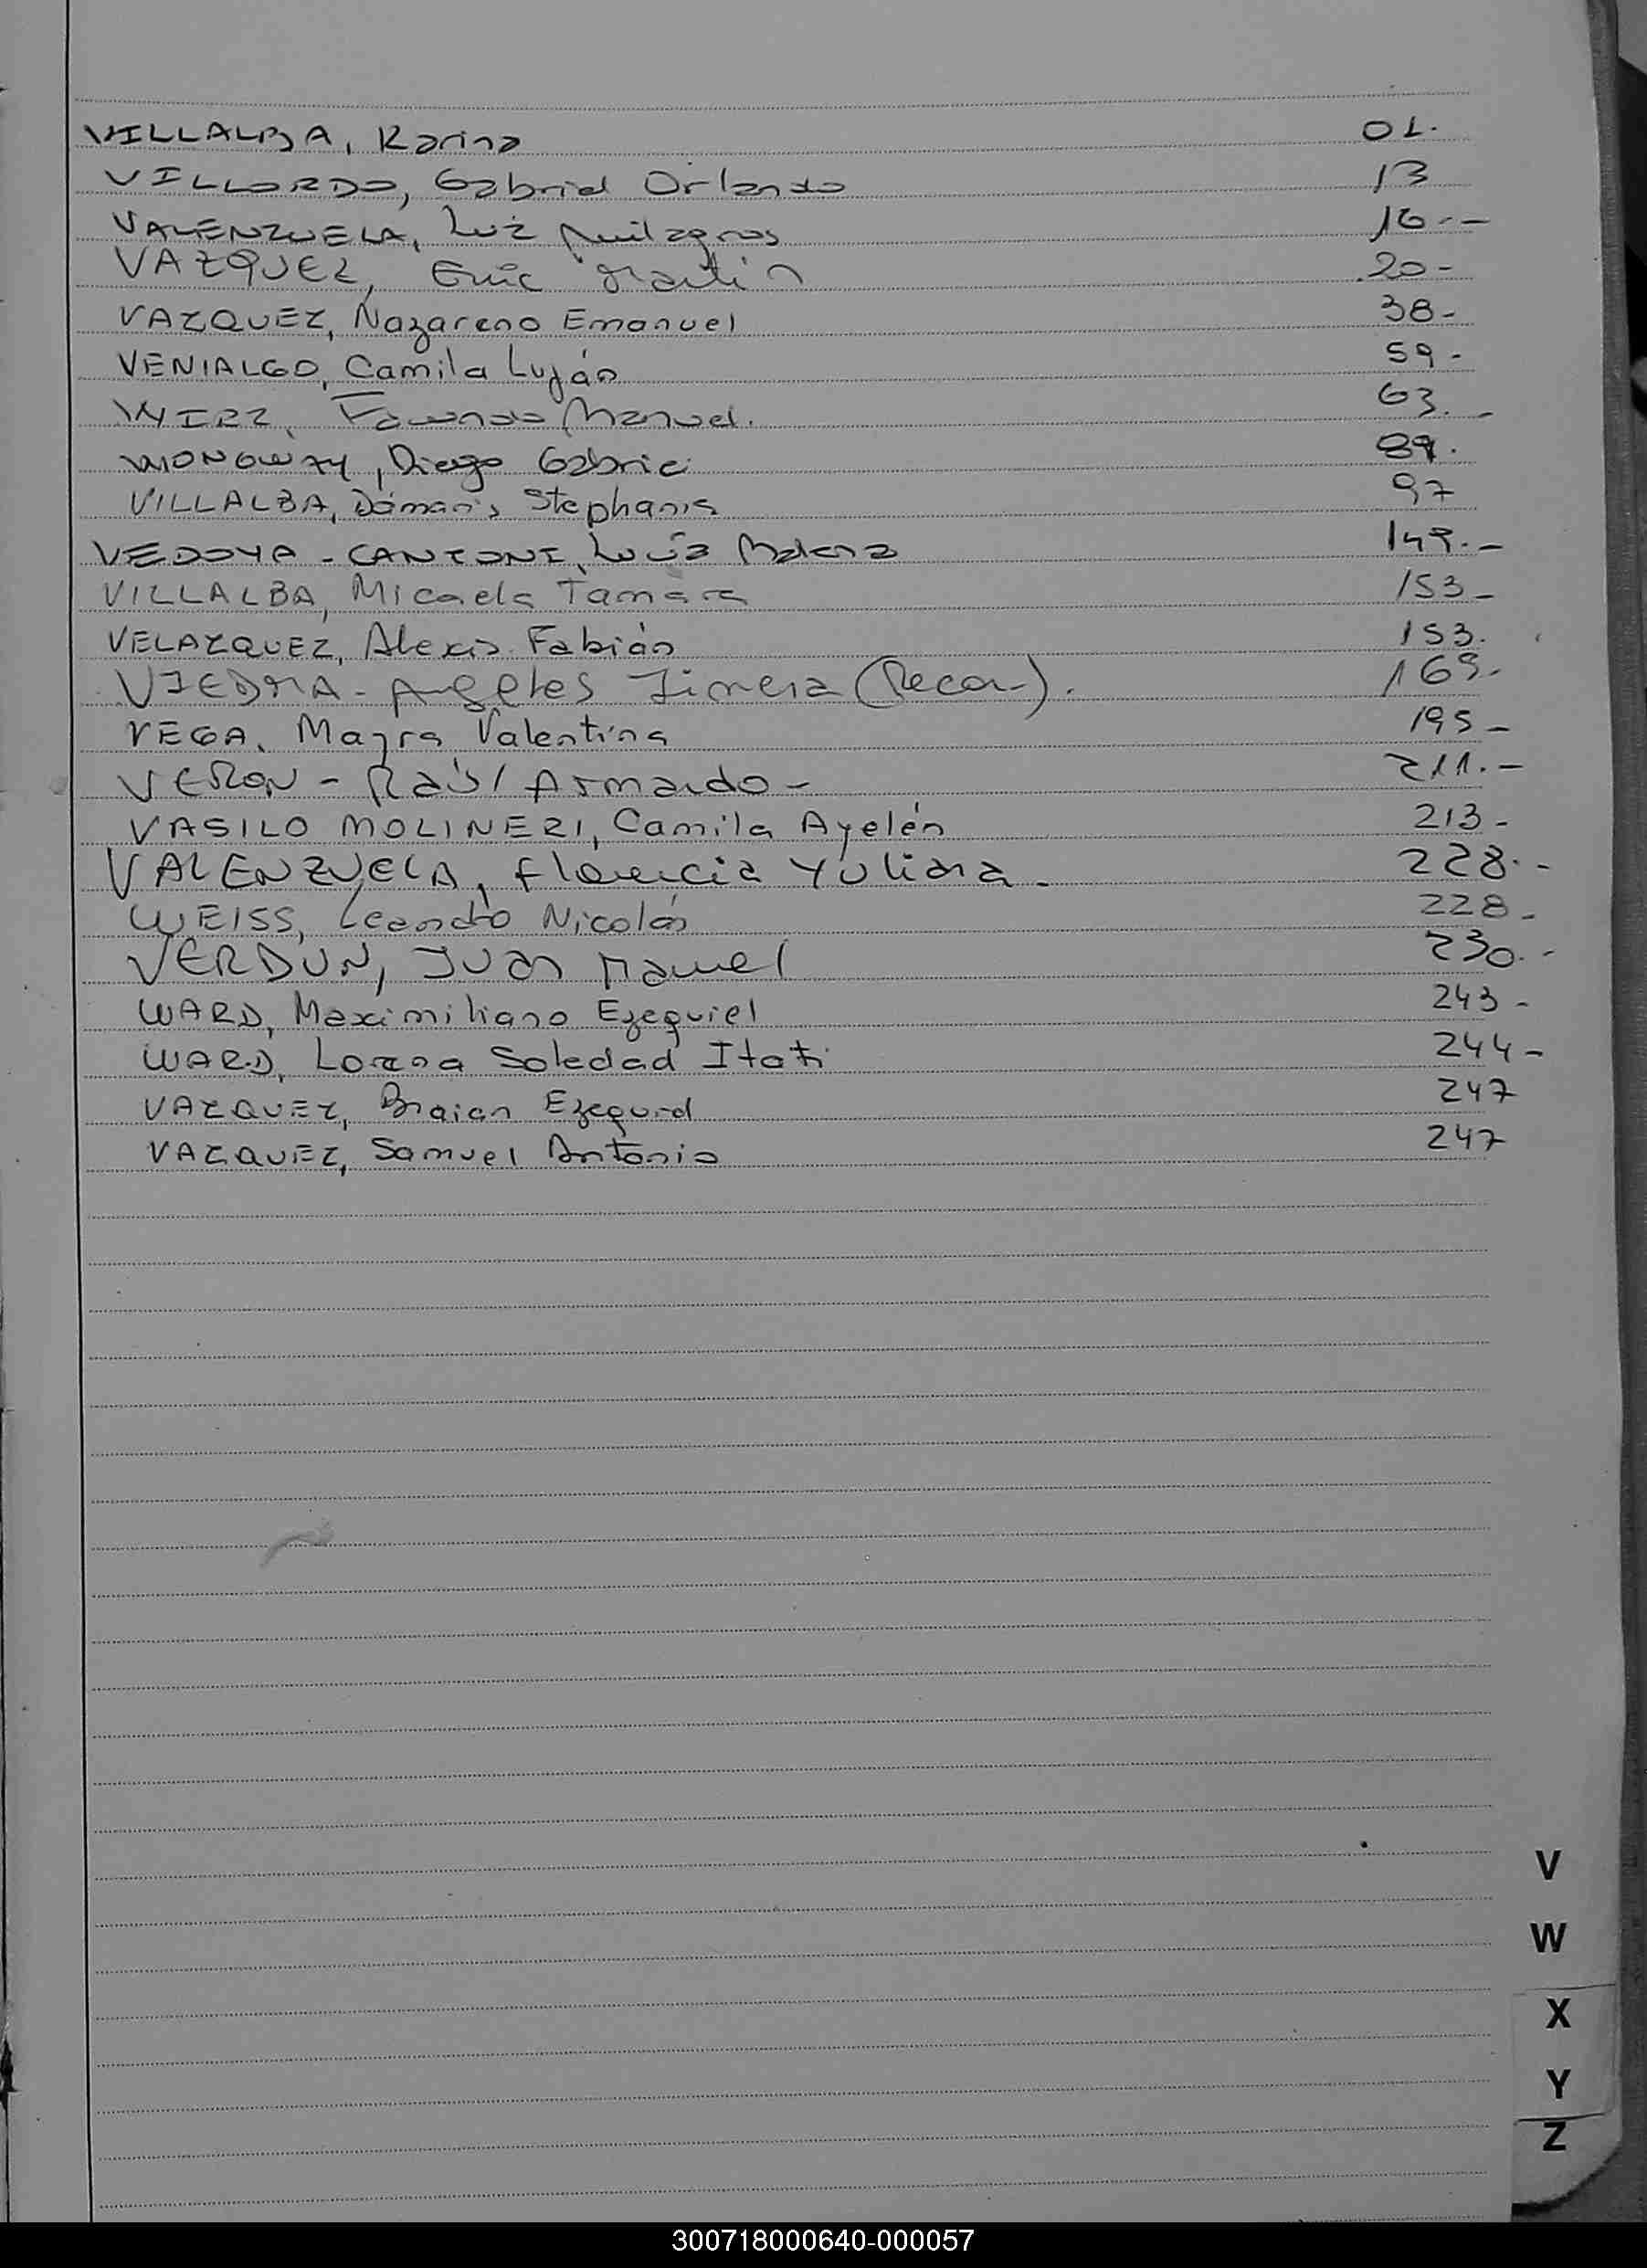 VILLALBA, Karina 01.
VILLORDO, Gabriel Orlando 13
VALENZUELA, Luz Milagros 16.-
VAZQUEZ, Eric Martín 20-
VAZQUEZ, Nazareno Emanuel 38-
VENIALGO, Camila Luján 59-
WIRZ, Facundo Manuel. 63.-
Diego Gabriel 89.
VILLALBA, Dámaris Stephanis 97
VEDOYA - CANTONI, Lucía Malena 149.-
VILLALBA, Micaela Tamara 153-
VELAZQUEZ, Alexis Fabián 153.
VIEDMA - Angeles Jimena (Recon-). 169-
VEGA, Mayra Valentina 195-
VERON - Raúl Armando - 211.-
VASILO MOLINERI, Camila Ayelén 213-
VALENZUELA, Florencia Yuliana. 228.-
WEISS, Leandro Nicolás 228-
VERDUN, Juan Manuel 230.-
WARD, Maximiliano Ezequiel 243-
WARD, Lorena Soledad Itatí 244-
VAZQUEZ, Braian Ezequiel 247
VAZQUEZ, Samuel Antonio 247
V
W
X
Y
Z
300718000640-000057